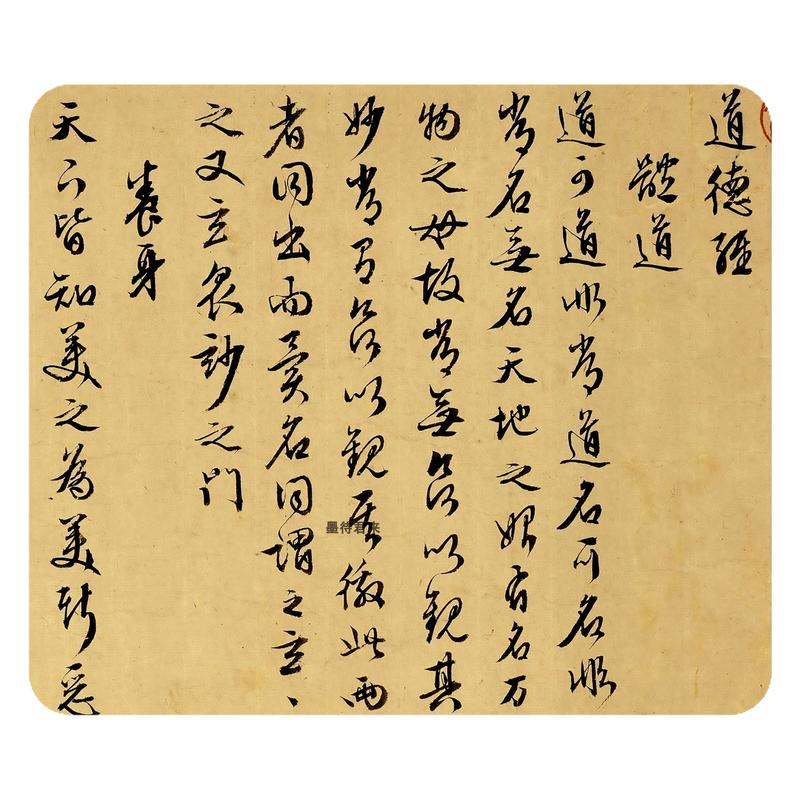 道德經
體道
道可道非常道名可名非
常名無名天地之始有名万
物之母故常無欲以觀其
妙常有欲以觀其徼此兩
者同出而異名同謂之玄、
之又玄衆妙之門
養身
天下皆知美之為美斯惡
墨待君来